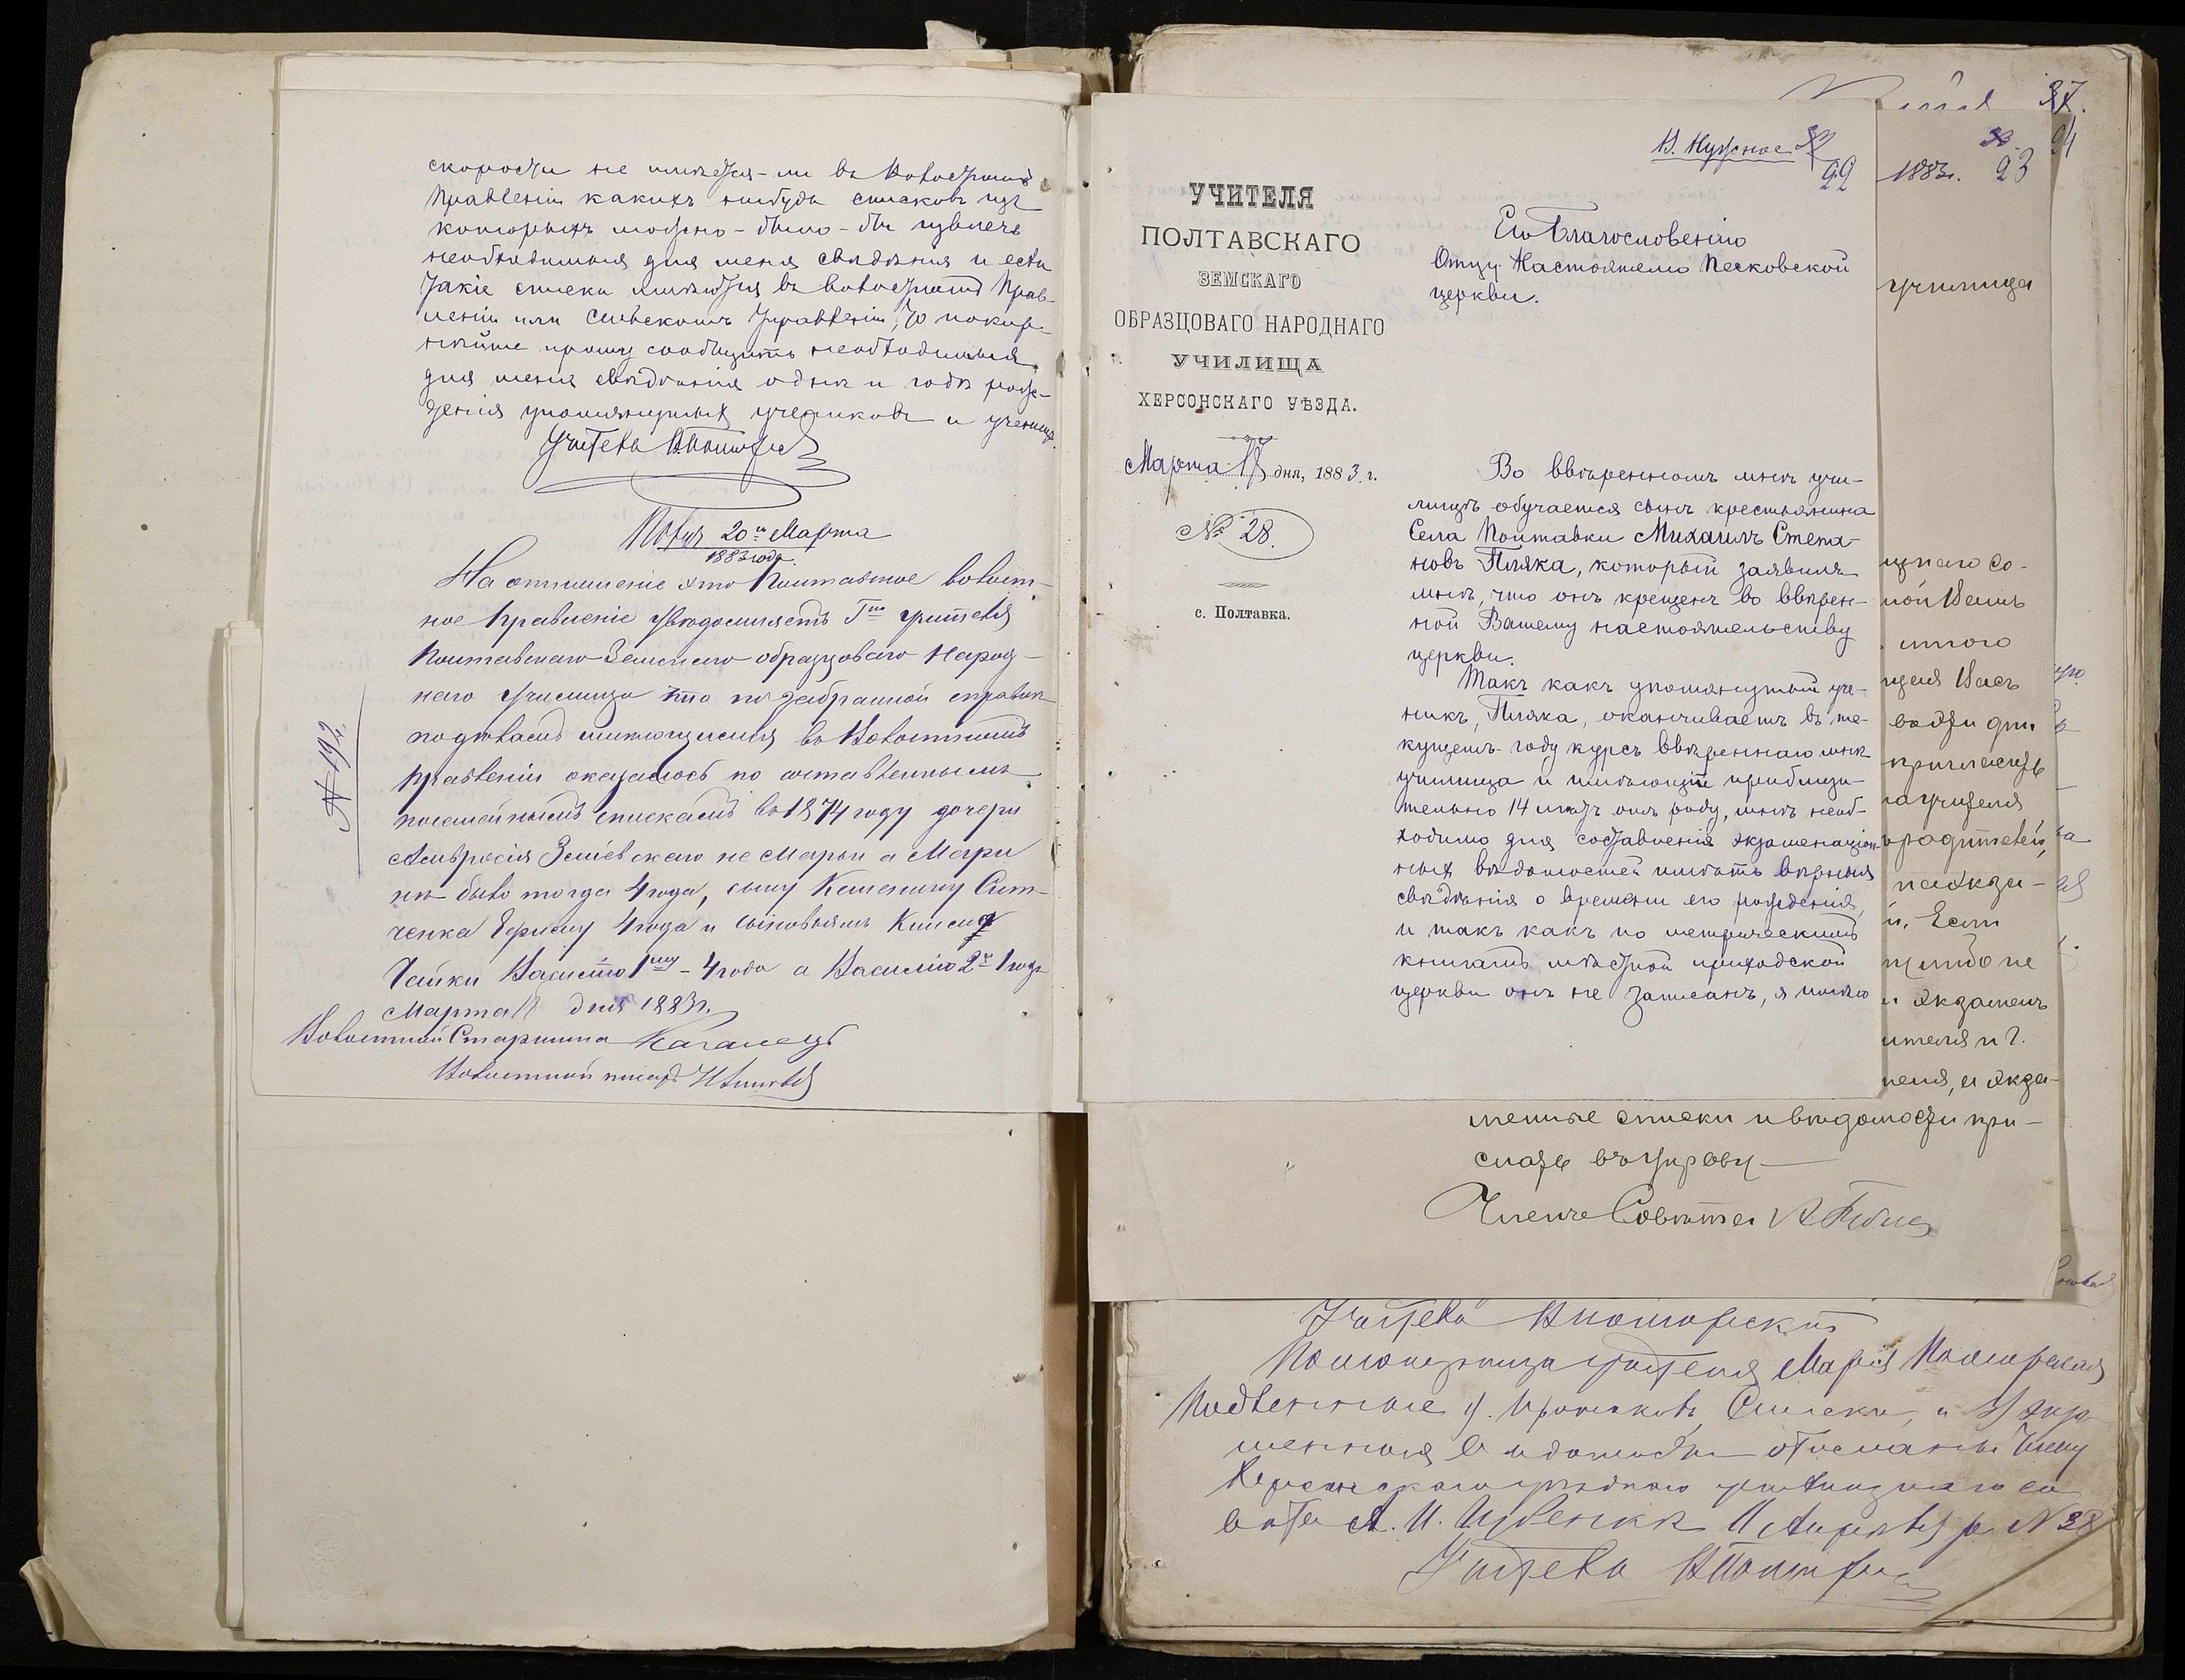 скорости не имѣется-ли въ Волостномъ
Правленіи какихъ нибудь списковъ изъ
которыхъ можно-было-бы извлечь
необходимыя для меня свѣдѣнія и если
такіе списки имѣются въ Волостномъ Прав-
леніи или Сельскомъ Управленіи, то покор-
нѣйше прошу сообщить необходимыя
для меня свѣдѣнія о днѣ и годѣ рож-
денія упомянутыхъ учениковъ и ученицъ.
Учитель
Получ. 20го Марта
1883 года.
На отношеніе это Полтавское волост-
ное Правленіе увѣдомляетъ Гна учителя
Полтавскаго Земскаго образцоваго Народ-
наго Училища что по забранной справкѣ
по дѣламъ имѣющимся въ Волостномъ
Правленіи оказалось по составленнымъ
посемейнымъ спискамъ въ 1874 году дочери
Амвросія Зміевскаго не Марьи а Мари
нѣ было тогда 4 года, сыну Климентія Сит-
ченка Ефиму 4 года и сыновьямъ
Чайки Василію 1му - 4 года а Василію 2му 1 годъ
Марта 18 дня 1883 г.
Волостной Старшина
Волостной писарь
№ 192
В. Нужное
22
УЧИТЕЛЯ
ПОЛТАВСКАГО
ЗЕМСКАГО
ОБРАЗЦОВАГО НАРОДНАГО
УЧИЛИЩА
ХЕРСОНСКАГО УѢЗДА.
Марта 17 дня, 1883 г.
№ 28.
с. Полтавка.
Его Благословенію
Отцу Настоятелю Песковской
церкви.
Во ввѣренномъ мнѣ учи-
лищѣ обучается сынъ крестьянина
Села Полтавки Михаилъ Степа-
новъ Пляка, который заявилъ
мнѣ, что онъ крещенъ во ввѣрен-
ной Вашему настоятельству
церкви.
Такъ какъ упомянутый уче-
никъ, Пляка, оканчиваетъ въ те-
кущемъ году курсъ ввѣреннаго мнѣ
училища и имѣющій приблизи-
тельно 14 лѣтъ отъ роду, мнѣ необ-
ходимо для составленія экзаменаціон-
ныхъ вѣдомостей имѣть вѣрныя
свѣдѣнія о времени его рожденія,
и такъ какъ по метрическимъ
книгамъ мѣстной приходской
церкви онъ не записанъ, я имѣю
37.
94
1883г. 23
училища
щнаго Со-
ной Вамъ
щая Васъ
пригласить
учителя
родителей,
и, Если
и экзаменъ
ителя и г.
 менные списки и вѣдомости при-
слать въ Управу
Членъ Совѣта
Учитель
Помощница учителя Марія
Подленные
менныя вѣдомости отосланы Члену
Херсонскаго уѣзднаго училищнаго со
вѣта А. И. № 38
Учитель